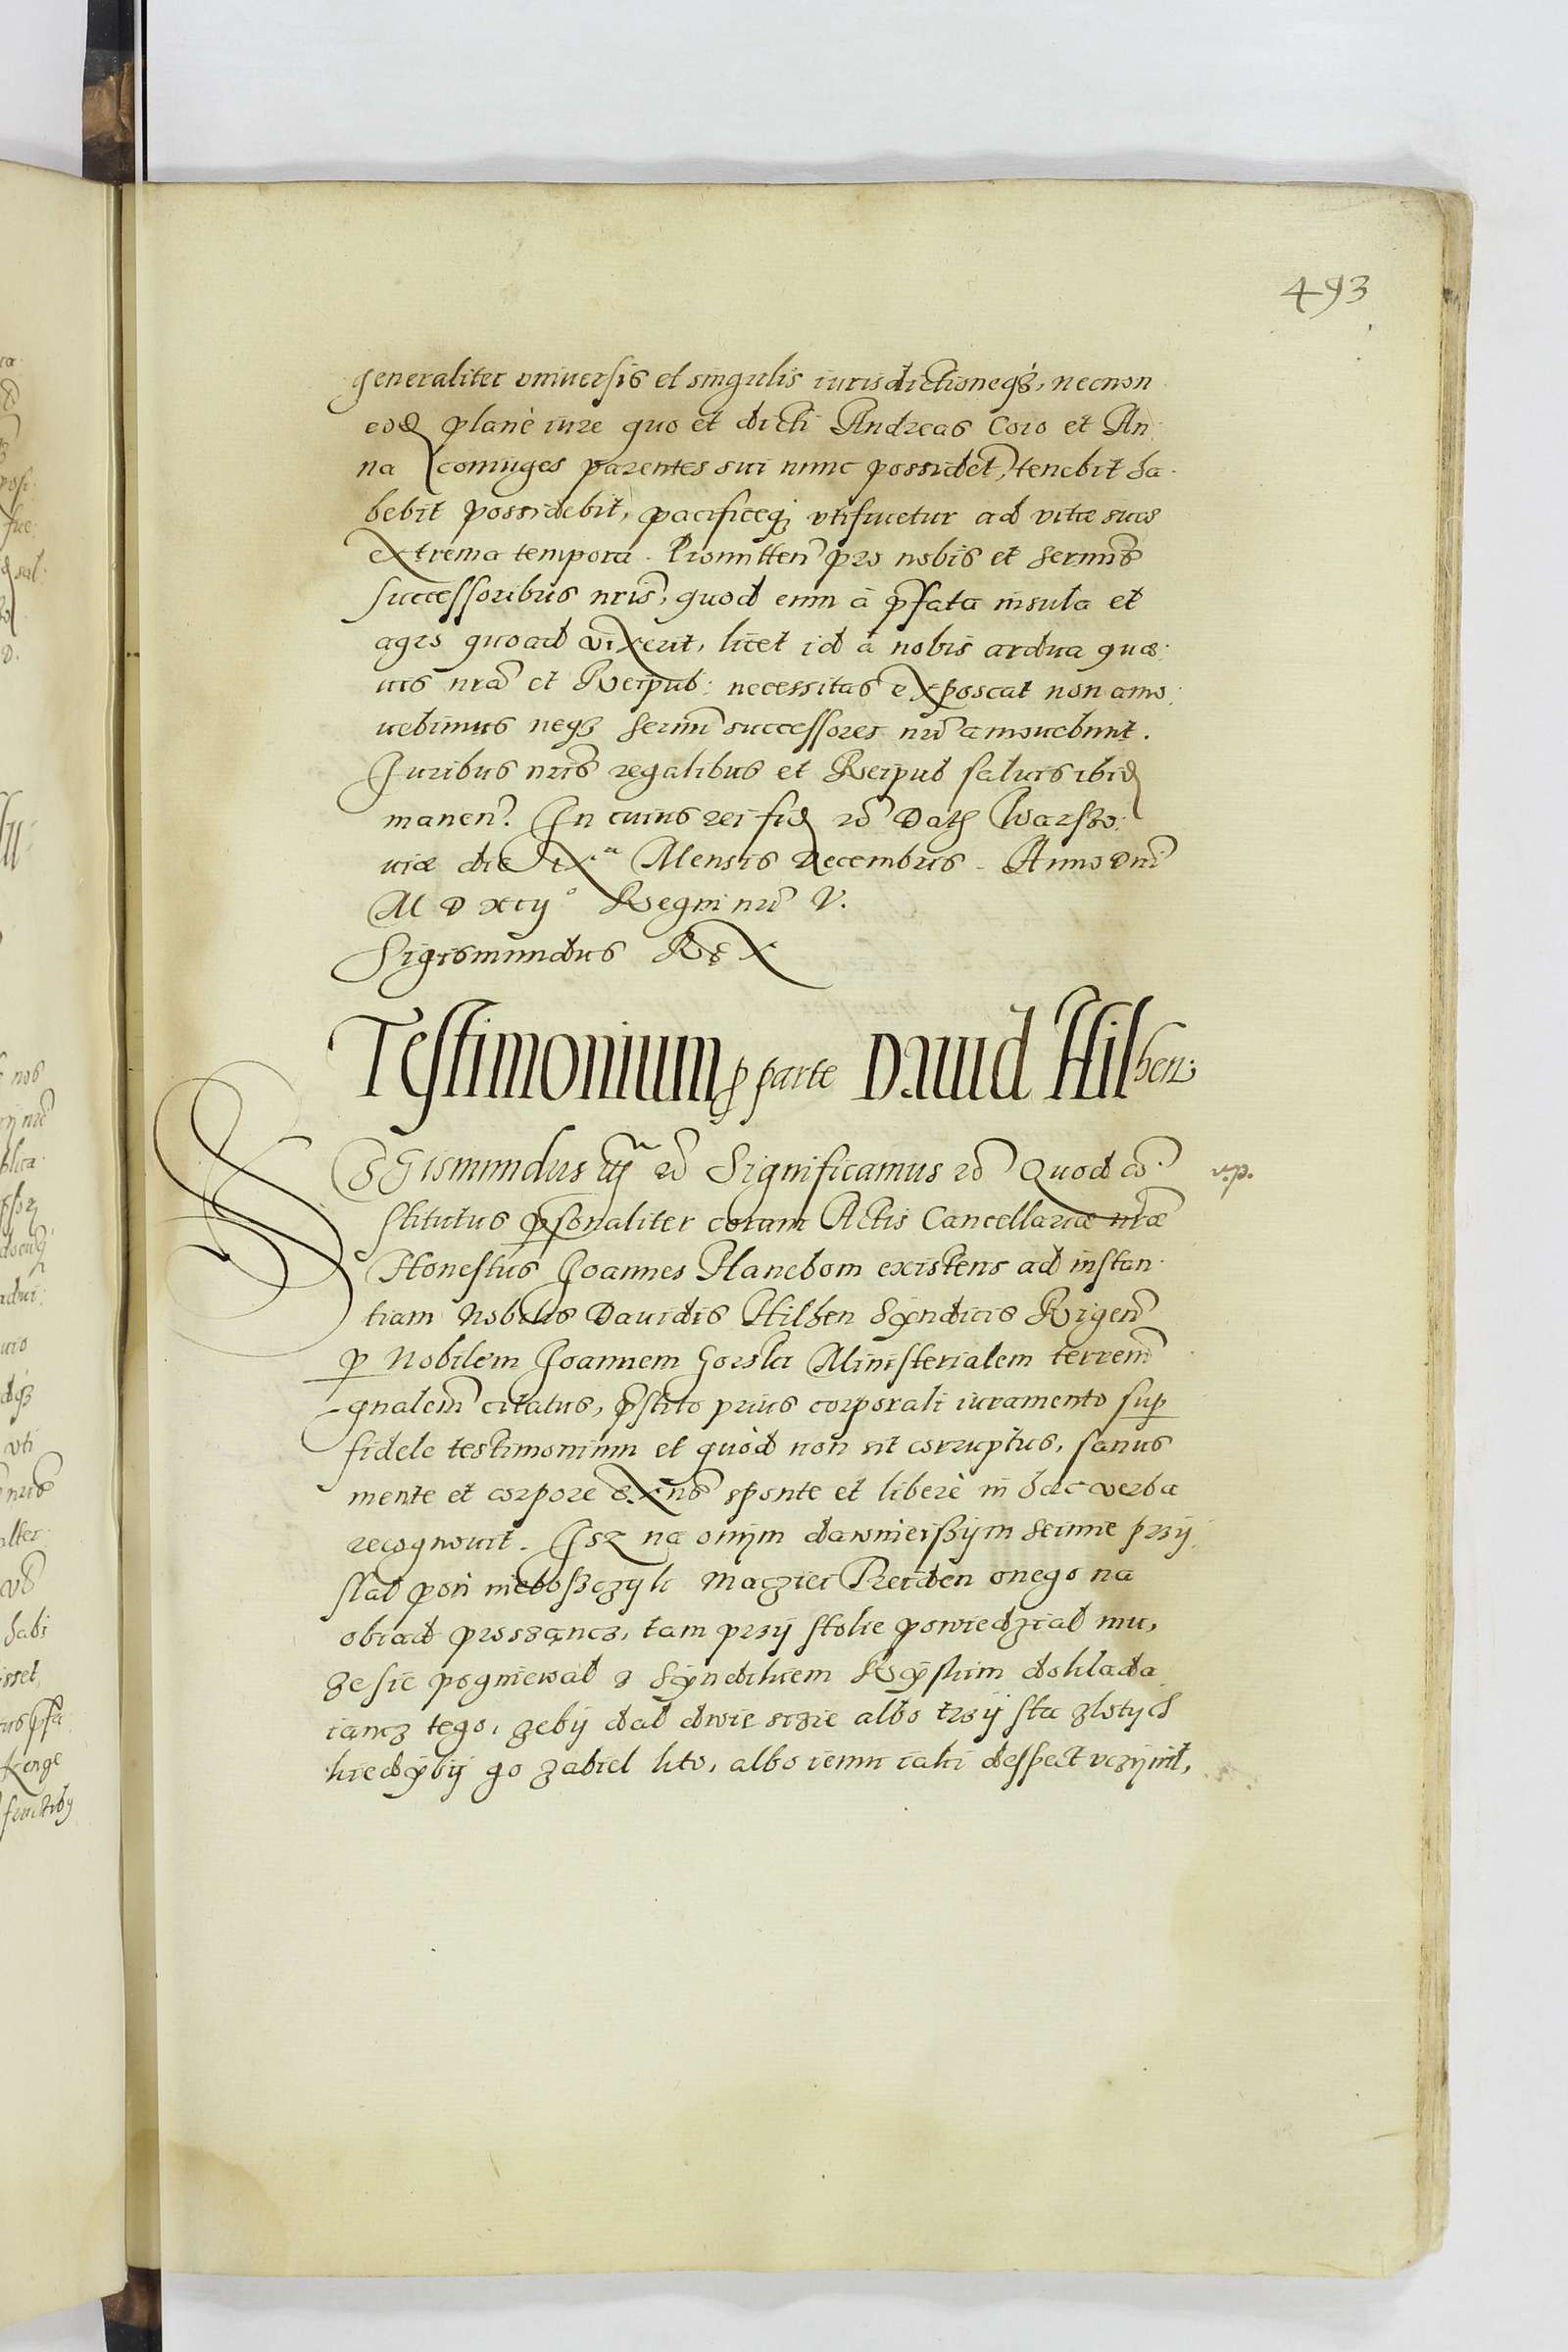 493
generaliter vniuersis et singulis iurisdictioneqz, necnon
eod planè iure quo et dicti Andreas Coro et An:
na coniuges parentes sui nunc possidet, tenebit ha:
bebit possidebit, pacificeqz vtifruetur ad vitæ suæ
extrema tempora. Promitten pro nobis et Sermis
successoribus nris, quod eum à pfata insula et
agro quoad vixerit, licet id à nobis ardua quæ:
uis nra et Reipub: necessitas exposcat non amo:
uebimus neqz Sermi successores nri amouebunt.
Juribus nris regalibus et Reipub saluis ibid
manen. In cuius rei fid rc Dat Warszo:
uiæ die ixa Mensis Decembris. Anno Dni
M D xcijo Regni nri V.
Sigismundus Rex
Testimonium p parte Dauid Hilhen:
SIGismundus iij rc Significamus rc Quod co: v.p.
stitutus psonaliter coram Actis Cancellariæ nræ
Honestus Joannes Planebom existens ad instan:
tiam Nobilis Dauidis Hilhen Syndicis Rigen
p Nobilem Joannem Gorski Ministerialem terrem
gnalem citatus, pstito prius corporali iuramento sup
fidele testimonium et quòd non sit corruptus, sanus
mente et corpore exns sponte et liberè in hæc verba
recognouit. Isz na onym dawnieiszym Seimie przy
słał pon nieboszczyk Macziei Reiden onego na
obiad proszącz, tam przy stole powiedział mu,
ze sie pogniewał z Syndikiem Ryskim doklada
iancz tego, zeby dał dwie scie albo trzy sta zlotych
kiedyby go zabiel kto, albo iemu iaki despect vczynil,